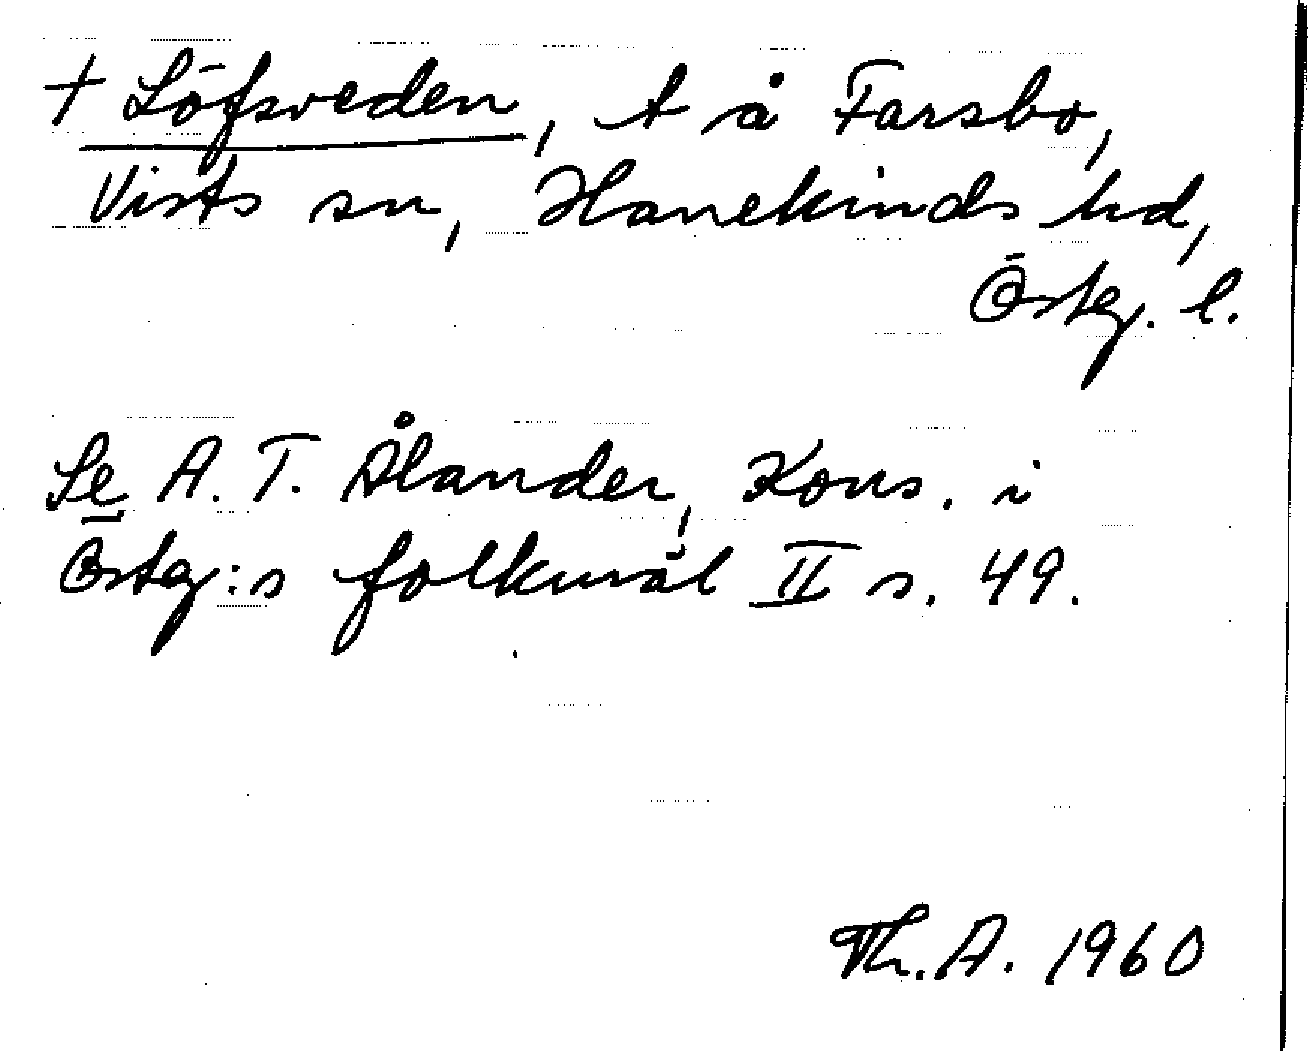 † Löfsveden, t å Farsbo,
Vists sn, Hanekinds hd,
Östg. l.
Se A. T. Ålander, Kons. i
Östg:s folkmål II s. 49.
Th. A. 1960